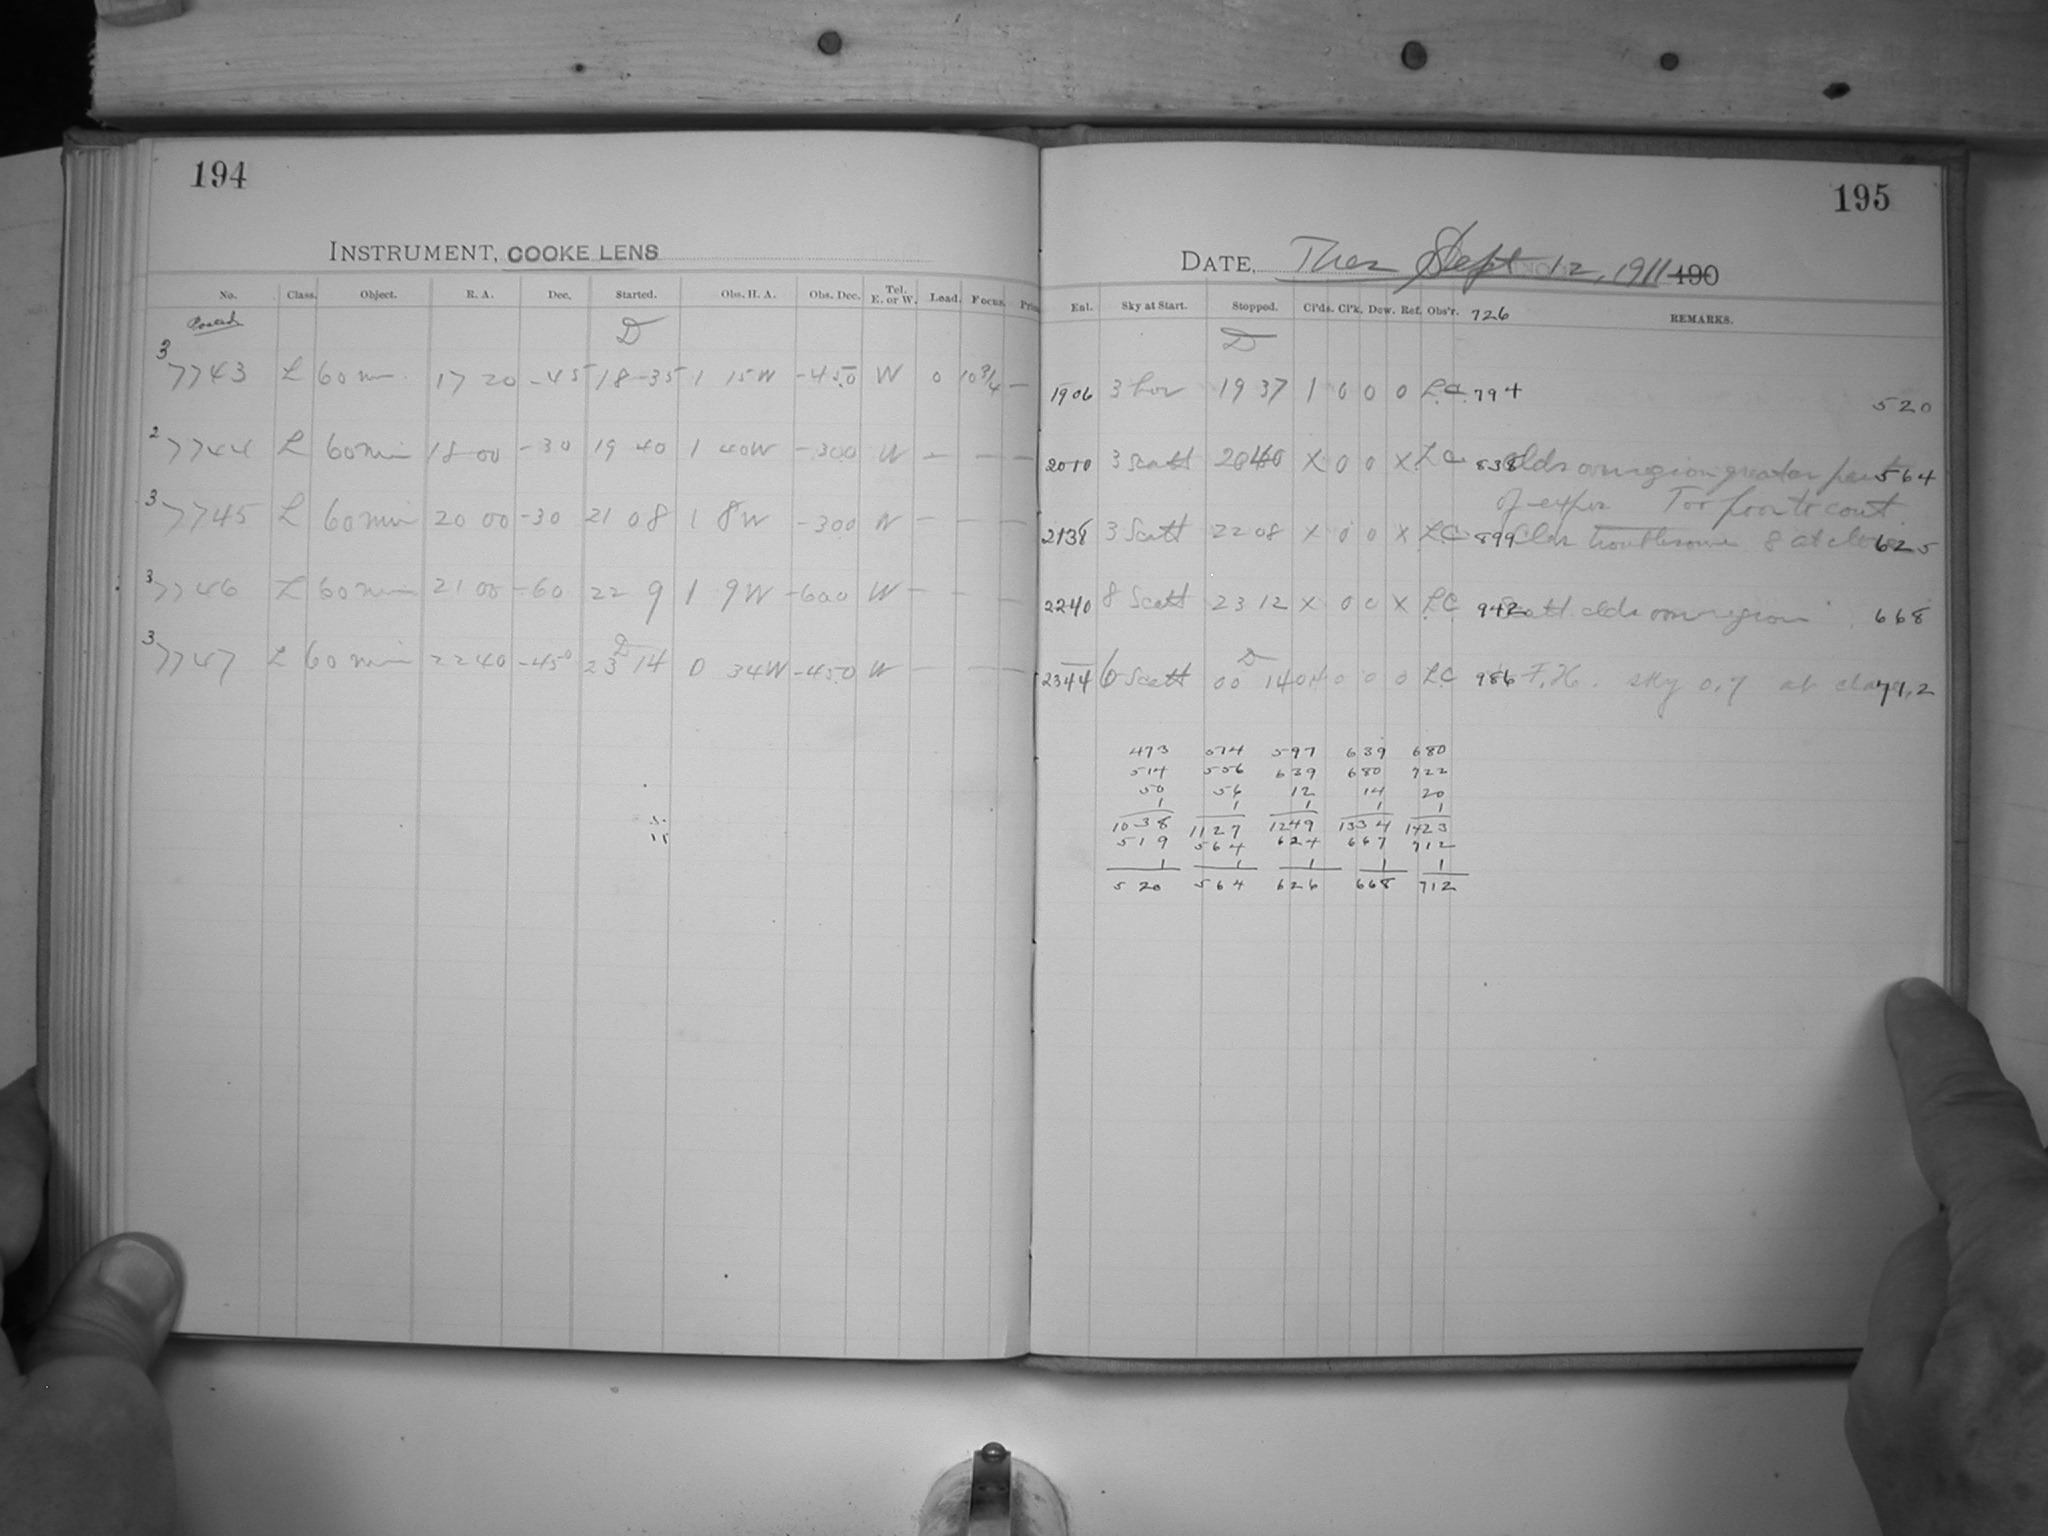 194
INSTRUMENT, COOKE LENS
No. Class. Object. R. A. Dec. Started. Obs. H. A. Obs. Dec. Tel. E. or W. Load. Focus.
Posted D
3 7743 L 60 min 17 20 -45 18 35 1 15W -450 W 0 10 3/4 —
2 7744 L 60 min 18 00 -30 19 40 1 40W -300 W — — —
3 7745 L 60 min 20 00 -30 21 08 1 8W -300 W — — —
3 7746 L 60 min 21 00 -60 22 9 1 9W -600 W — — —
D
3 7747 L 60 min 22 40 -45° 23 14 0 34W -450 W — — —
195
DATE, Sept 12, 1911 490
Enl. Sky at Start. Stopped. Cl'ds. Cl'k. Dew. Ref. Obs'r. 726 REMARKS.
D
1906 3 hor 19 37 1 0 0 0 LC 794 520
2010 3 Scatt X 0 0 X LC 838 clds over region greater part 564
of expos Too poor to count
2138 3 Scatt 22 08 X 0 0 X LC 899 Clds troublesome 8 at close 625
2240 8 Scatt 23 12 X 0 0 X LC 942 Scatt. clds over region 668
D
2344 6 Scatt 00 14 0 0 0 LC 986 sky 0,7 at close 712
473 514 597 639 680
514 556 639 680 722
50 56 12 14 20
1 1 1 1 1
1038 1127 1249 1334 1423
519 564 624 667 712
1 1 1 1 1
520 564 626 668 712